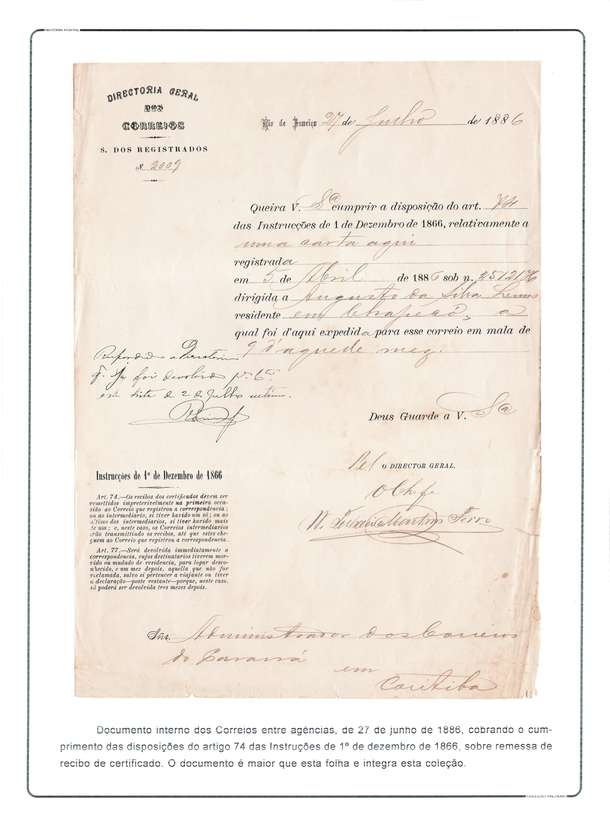 DIRECTORIA GERAL
DOS
CORREIOS
S. DOS REGISTRADOS
N. 2009
Rio de Janeiro 27 de Junho de 1886
Queira V. Sª cumprir a disposição do art. 74
das Instrucções de 1 de Dezembro de 1866, relativamente a
uma carta aqui
registrada
em 5 de Abril de 1886 sob n.
dirigida a Augusto da Silva Lemos
residente em a
qual foi d'aqui expedida para esse correio em mala de
9 d'aquede mez.
foi devolvida
de 2 de Julho
Deus Guarde a V. Sª
Pel O DIRECTOR GERAL.
O Chefe
Instrucções de 1º de Dezembro de 1866
Art. 74.—Os recibos dos certificados devem ser
remettidos impreterivelmente na primeira occa-
sião ao Correio que registrou a correspondencia;
ou ao intermediario, si tiver havido um só; ou ao
ultimo dos intermediarios, si tiver havido mais
de um: e, neste caso, os Correios intermediarios
irão transmittindo os recibos, até que estes che-
guem ao Correio que registrou a correspondencia.
Art. 77.—Será devolvida immediatamente a
correspondencia, cujos destinatarios tiverem mor-
rido ou mudado de residencia, para logar desco-
nhecido, e um mez depois, aquella que não for
reclamada, salvo si pertencer a viajante ou tiver
a declaração—poste restante—porque, neste caso,
só poderá ser devolvida tres mezes depois.
Snr. Administrador dos Correios
do Paraná
em
Coritiba
Documento interno dos Correios entre agências, de 27 de junho de 1886, cobrando o cum-
primento das disposições do artigo 74 das Instruções de 1º de dezembro de 1866, sobre remessa de
recibo de certificado. O documento é maior que esta folha e integra esta coleção.